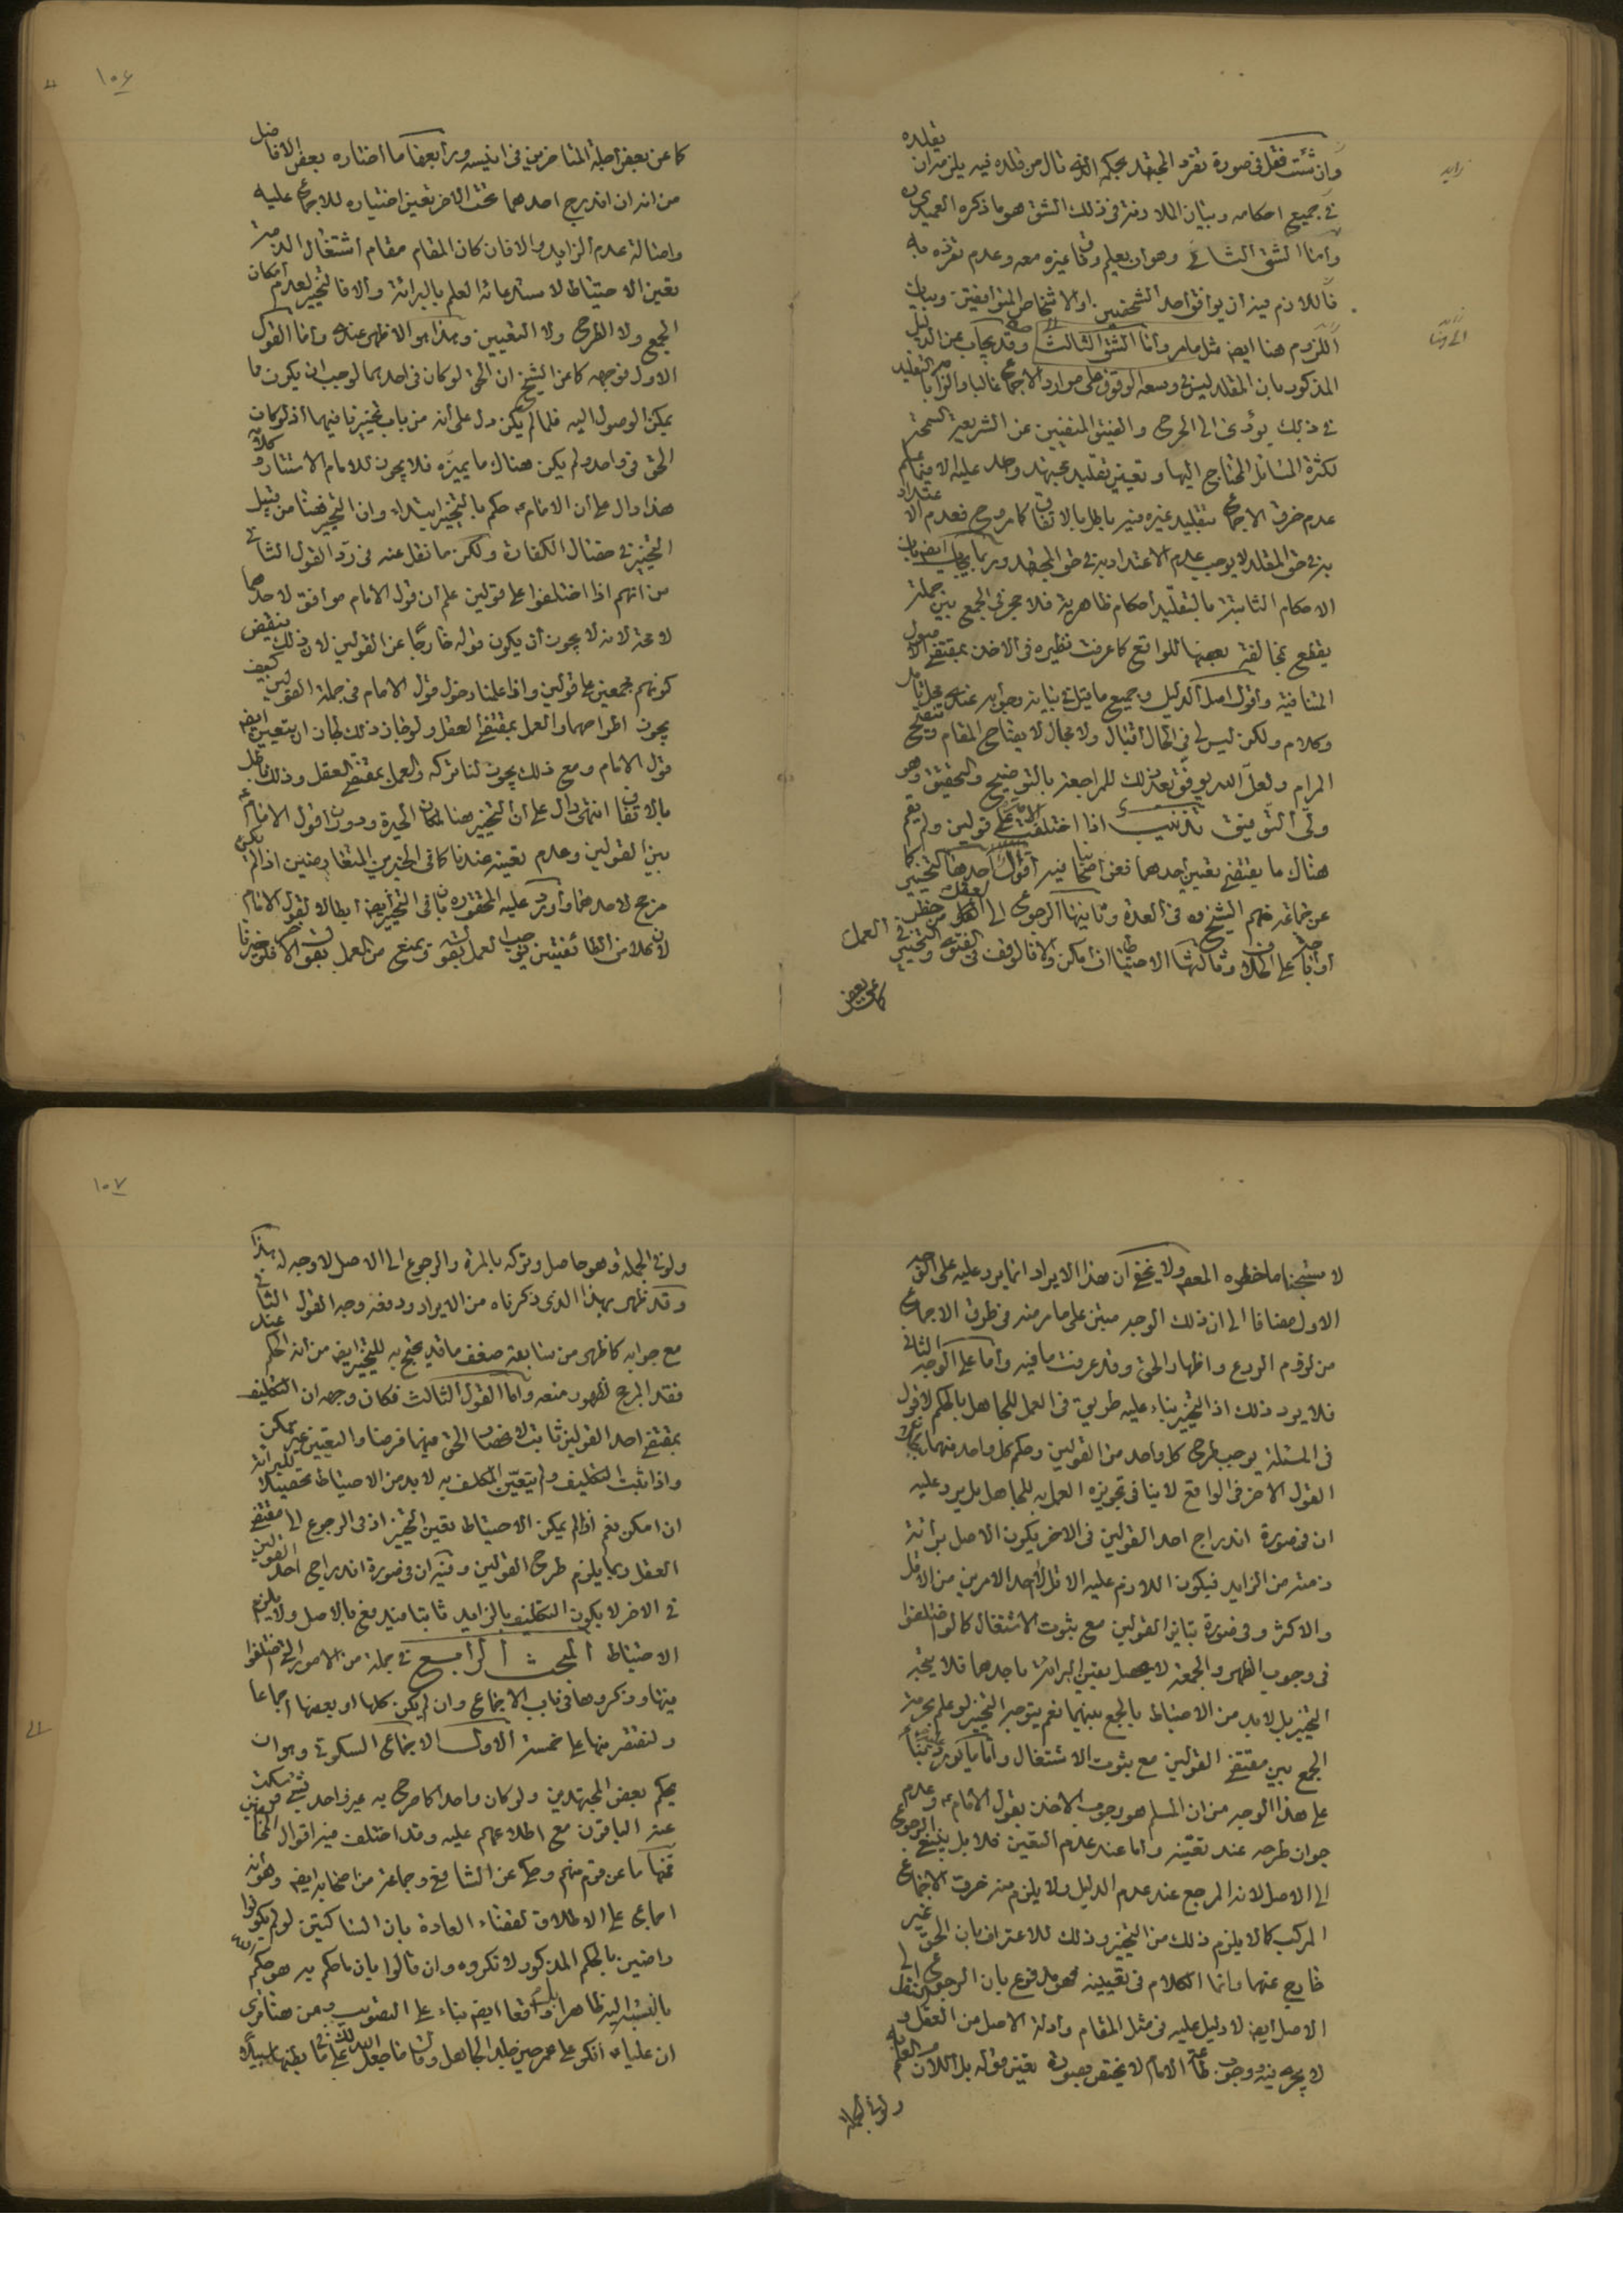 وان شئت فقل فى صورة تفرد المجتهد بحكم انه قال من قلده فيه يلزم ان يقلده
فى جميع احكامه وبيان الملازمة فى ذلك الشق هو ما ذكره العميدى
واما الشق الثانى وهو ان يعلم وفاق غيره معه وعدم تفرده به
فاللازم منه ان يوافق احد الشخصين او الاشخاص المتوافقين وبيان
اللزوم هنا ايض مثل ما مر واما الشق الثالث وقد يجاب عن الدليل
المذكور بان المقلد ليس فى وسعه الوقوف على موارد الاجماع غالبا والزامه بالتقليد
فى ذلك يؤدى الى الحرج والضيق المنفيين عن الشريعة السمحة
لكثرة المسائل المحتاج اليها وتعيين تقليد مجتهد واحد عليه لا فيما علم
عدم خرق الاجماع بتقليد غيره فيه باطل بالاتفاق كما مر وح فعدم الاعتداد
به فى حق المقلد لا يوجب عدم الاعتداد به فى حق المجتهد وربما يجاب ايض بان
الاحكام الثابتة بالتقليد احكام ظاهرية فلا حجر فى الجمع بين جملة
يقطع بمخالفة بعضها للواقع كما عرفت نظيره فى الاخذ بمقتضى الاصول
المتنافية واقول اصل الدليل وجميع ما قيل فى بيانه وجوابه عندى محل تامل
وكلام ولكن ليس لى فى الحال اقبال ولا مجال لايضاح المقام وتنقيح
المرام ولعل الله يوفق بعد ذلك للمراجعة بالتوضيح والتحقيق وهو
ولى التوفيق تذنيب اذا اختلفت الامة على قولين ولم يقم
هناك ما يقتضى تعيين احدهما فعن اصحابنا فيه اقوال احدها التخيير
عن جماعة منهم الشيخ ره فى العدة وثانيها الرجوع الى العقل من حظر
او اباحة على الخلاف وثالثها الاحتياط ان امكن والا فالوقف فى الفتوى والتخيير فى العمل
كما عن بعض
كما عن بعض اجلة المتاخرين فى انيسه ورابعها ما اختاره بعض الافاضل
من انه ان اندرج احدهما تحت الاخر تعين اختياره للاجماع عليه
واصالة عدم الزايد والا فان كان المقام مقام اشتغال الذمة
تعين الاحتياط لاستدعائه العلم بالبرائة والا فالتخيير لعدم امكان
الجمع ولا الطرح ولا التعيين وهذا هو الاظهر عندى واما القول
الاول فوجهه كما عن الشيخ ان الحق لو كان فى احدهما لوجب ان يكون مما
يمكن الوصول اليه فلما لم يكن دل على انه من باب تخييرنا فيهما اذ لو كان
الحق فى واحد ولم يكن هناك ما يميزه فلا يجوز للامام الاستتار وكلامه
هذا دال على ان الامام ع حكم بالتخيير ابتداء وان التخيير هنا من قبيل
التخيير فى خصال الكفارة ولكن ما نقل عنه فى رد القول الثانى
من انهم اذا اختلفوا على قولين علم ان قول الامام موافق لاحدهما
لا محة لانه لا يجوز ان يكون قوله خارجا عن القولين لان ذلك ينقض
كونهم مجمعين على قولين واذا علمنا دخول قول الامام فى جملة القولين كيف
يجوز اطراحهما والعمل بمقتضى العقل ولو جاز ذلك لجاز ان يتعين ايض
قول الامام ومع ذلك يجوز لنا تركه والعمل بمقتضى العقل وذلك باطل
بالاتفاق انتهى دال على ان التخيير هنا لمكان الحيرة ودوران قول الامام ع
بين القولين وعدم تعينه عندنا كما فى الخبرين المتعارضين اذا لم يكن
مرجح لاحدهما واورد عليه المحقق ره بان فى التخيير ايض ابطالا لقول الامام
لان كلا من الطائفتين يوجب العمل بقوله ويمنع من العمل بقول الاخر فلو خيرنا
لاستبحنا ما حظره المعصوم ولا يخفى ان هذا الايراد انما يرد عليه على الوجه
الاول مضافا الى ان ذلك الوجه مبتن على ما مر منه فى طرق الاجماع
من لزوم الردع واظهار الحق وقد عرفت ما فيه واما على الوجه الثانى
فلا يرد ذلك اذ التخيير بناء عليه طريق فى العمل للجاهل بالحكم لا قول
فى المسئلة يوجب طرح كل واحد من القولين وحكم كل واحد منهما بطلان
القول الاخر فى الواقع لا ينافى تجويزه العمل به للجاهل بل يرد عليه
ان فى صورة اندراج احد القولين فى الاخر يكون الاصل برائة
ذمته من الزايد فيكون اللازم عليه الاقل لاحد الامرين من الاقل
والاكثر وفى صورة تباين القولين مع ثبوت الاشتغال كما لو اختلفوا
فى وجوب الظهر والجمعة لا يحصل يقين البرائة باحدهما فلا يتجه
التخيير بل لا بد من الاحتياط بالجمع بينهما نعم يتوجه التخيير لو علم بحرمة
الجمع بين مقتضى القولين مع ثبوت الاشتغال واما ما يورد
على هذا الوجه من ان المسلم هو وجوب الاخذ بقول الامام ع وعدم
جواز طرحه عند تعينه واما عند عدم التعين فلا بل ينبغى الرجوع
الى الاصل لانه المرجع عند عدم الدليل ولا يلزم منه خرق الاجماع
المركب كما لا يلزم ذلك من التخيير وذلك للاعتراف بان الحق غير
خارج عنهما وانما الكلام فى تعيينه فهو مدفوع بان الرجوع الى
الاصل ايض لا دليل عليه فى مثل المقام وادلة الاصل من العقل والنقل
لا يجرى فيه ووجوب طاعة الامام لا يختص بصورة تعين قوله بل اللازم العلم به
ولو فى الجملة
ولو فى الجملة وهو حاصل وتركه بالمرة والرجوع الى الاصل لا وجه له بهذا
وقد ظهر بهذا الذى ذكرناه من الايراد ودفعه وجه القول الثانى
مع جوابه كما ظهر من سابقه ضعف ما قد يحتج به للتخيير ايض من انه الحكم عند
فقد المرجح لظهور منعه واما القول الثالث فكان وجهه ان التكليف
بمقتضى احد القولين ثابت لانحصار الحق فيهما فرضا والتعيين غير ممكن
واذا ثبت التكليف ولم يتعين المكلف به لا بد من الاحتياط تحصيلا للبرائة
ان امكن نعم اذا لم يمكن الاحتياط تعين التخيير اذ فى الرجوع الى مقتضى
العقل ربما يلزم طرح القولين وفيه ان فى صورة اندراج احد القولين
فى الاخر لا يكون التكليف بالزايد ثابتا فيدفع بالاصل ولا يلزم
الاحتياط المبحث الرابع فى جملة من الامور التى اختلفوا
فيها وذكروها فى باب الاجماع وان لم يكن كلها او بعضها اجماعا
ولنقتصر منها على خمسة الاول الاجماع السكوتى وهو ان
يحكم بعض المجتهدين ولو كان واحدا كما صرح به غير واحد بشئ فسكت
عنه الباقون مع اطلاعهم عليه وقد اختلف فيه اقوال المخالفين
فمنها ما عن قوم منهم وحكى عن الشافعى وجماعة من اصحابه ايض وهو انه
اجماع على الاطلاق لقضاء العادة بان الساكتين لو لم يكونوا
راضين بالحكم المذكور لانكروه وان قالوا بان ما حكم به هو حكم الله
بالنسبة اليه ظاهرا بل واقعا ايض بناء على التصويب ومن هنا ترى
ان عليا ع انكر على عمر حين جلد الحامل وقال ما جعل الله لك على ما فى بطنها سبيلا
١٠٦
١٠٧
زايد